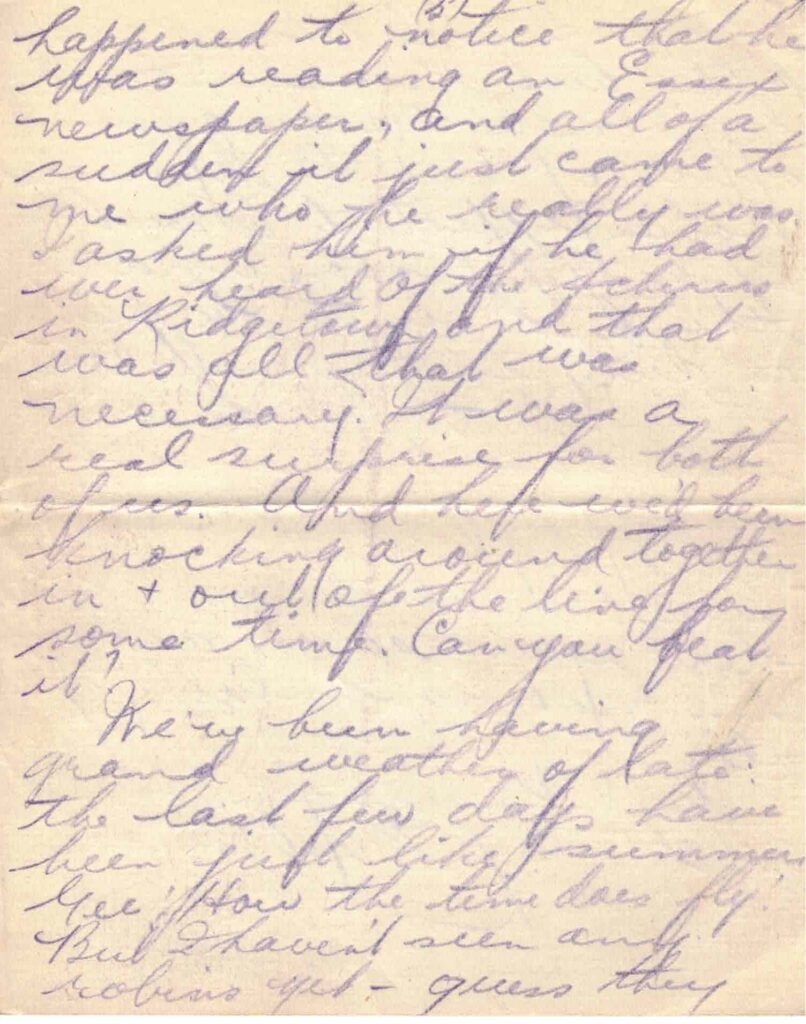 (5)
happened to notice that he
was reading an Essex
newspaper, and all of a
sudden it just came to
me who he really was.
I asked him if he had
ever heard of the
in Ridgetown and that
was all that was
necessary. It was a
real surprise for both
of us. And here we'd been
knocking around together
in + out of the line for
some time. Can you beat
it?
We've been having
grand weather of late:
the last few days have
been just like summer
Gee! How the time does fly!
But I haven't seen any
robins yet - guess they